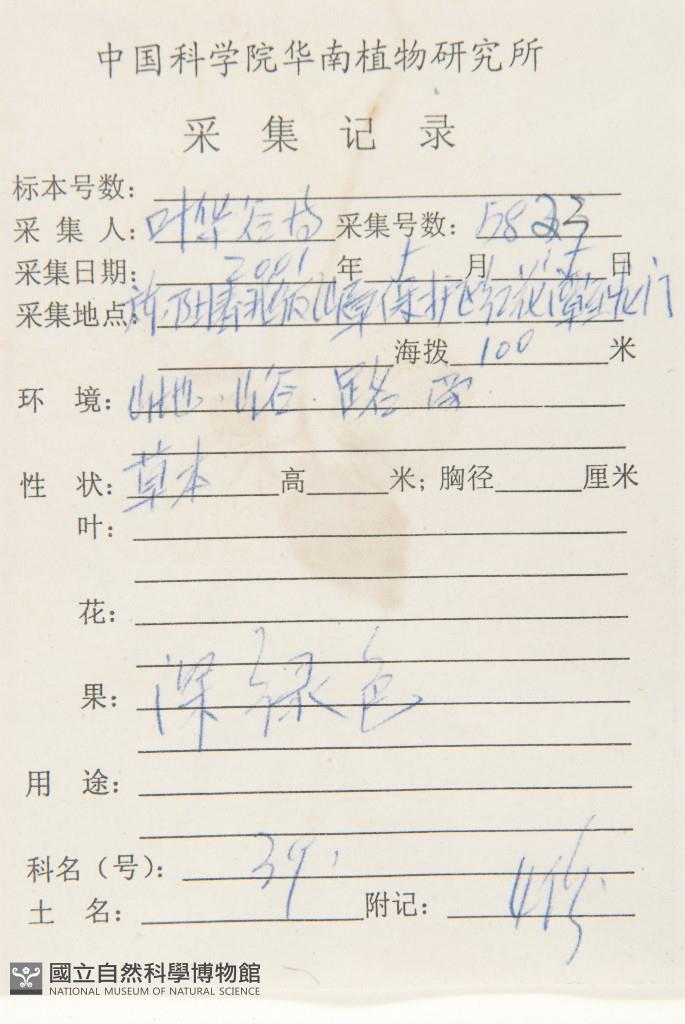 中国科学院华南植物研究所
采集记录
标本号数:
采集人: 叶华谷 采集号数: 5823
采集日期: 2001年 月 日
采集地点: 保护区红花潭至龙门
海拨 100 米
环境: 山地·山谷· 路旁
性状: 草本 高 米; 胸径 厘米
叶:
花:
果: 深绿色
用途:
科名(号): 39.
土名: 附记:
國立自然科學博物館
NATIONAL MUSEUM OF NATURAL SCIENCE